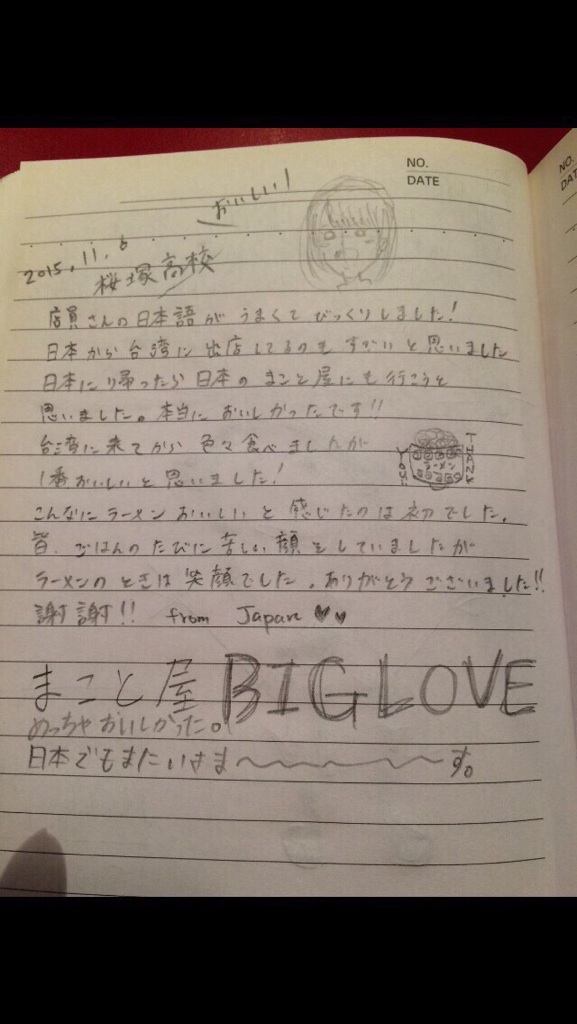 NO.
DATE
おいしい!
2015.11.6
桜塚高校
店員さんの日本語がうまくてびっくりしました!
日本から台湾に出店してるのもすごいと思いました
日本に帰ったら日本のまこと屋にも行こうと
思いました。本当においしかったです!!
台湾に来てから色々食べましたが
1番おいしいと思いました!
THANK
YOU!!
ラーメン
こんなにラーメンおいしいと感じたのは初でした。
皆、ごはんのたびに苦しい顔をしていましたが
ラーメンのときは笑顔でした。ありがとうございました!!
謝謝!! from Japan ♥♥
まこと屋 BIG LOVE
めっちゃおいしかった。
日本でもまたいきま〜〜〜〜す。
NO.